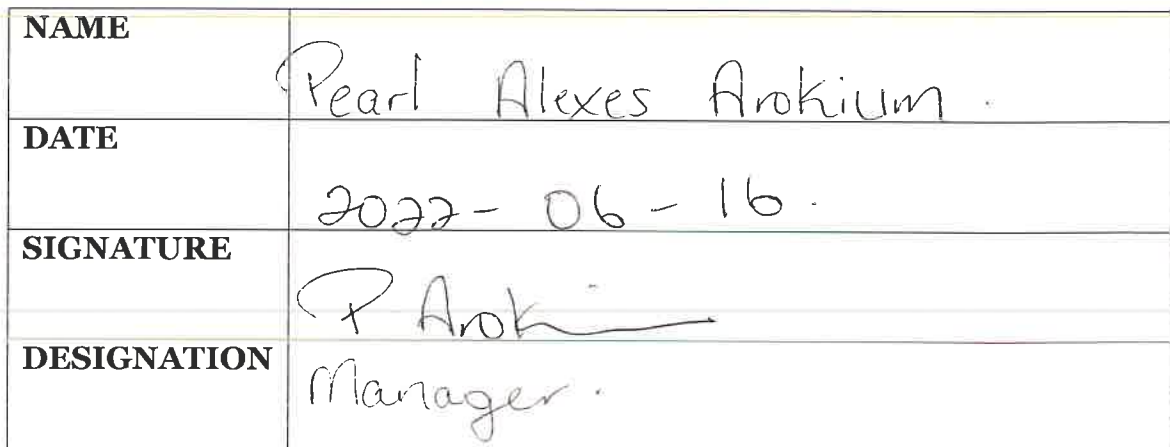 NAME
Pearl Alexes Arokium.
DATE
2022-06-16.
SIGNATURE
P Aroki
DESIGNATION
Manager.